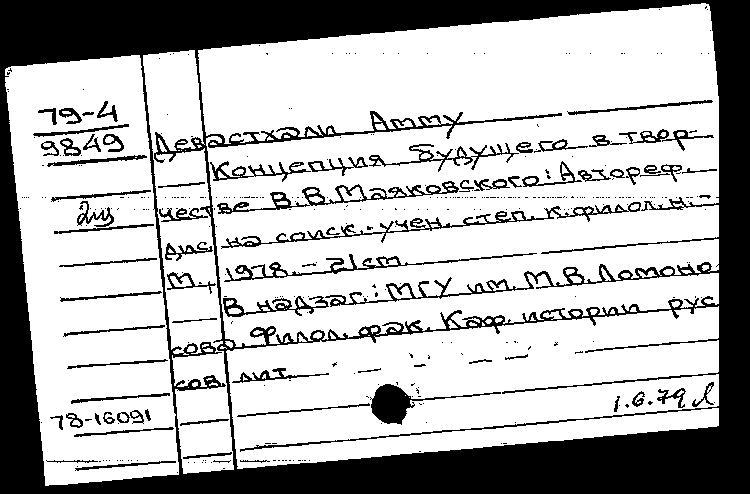 79-4
9849
Девастхали Атту
Концепция будущего в твор-
2 из
честве В.В.Маяковского: Автореф.
дис. на соиск. учен. степ. к.филол.н. -
М., 1978. - 21 ст.
В надзаг.: МГУ им. М.В. Ломоно
сова. Филол. фак. Каф. истории рус
сов. лит.
78-16091
1.6.79 л